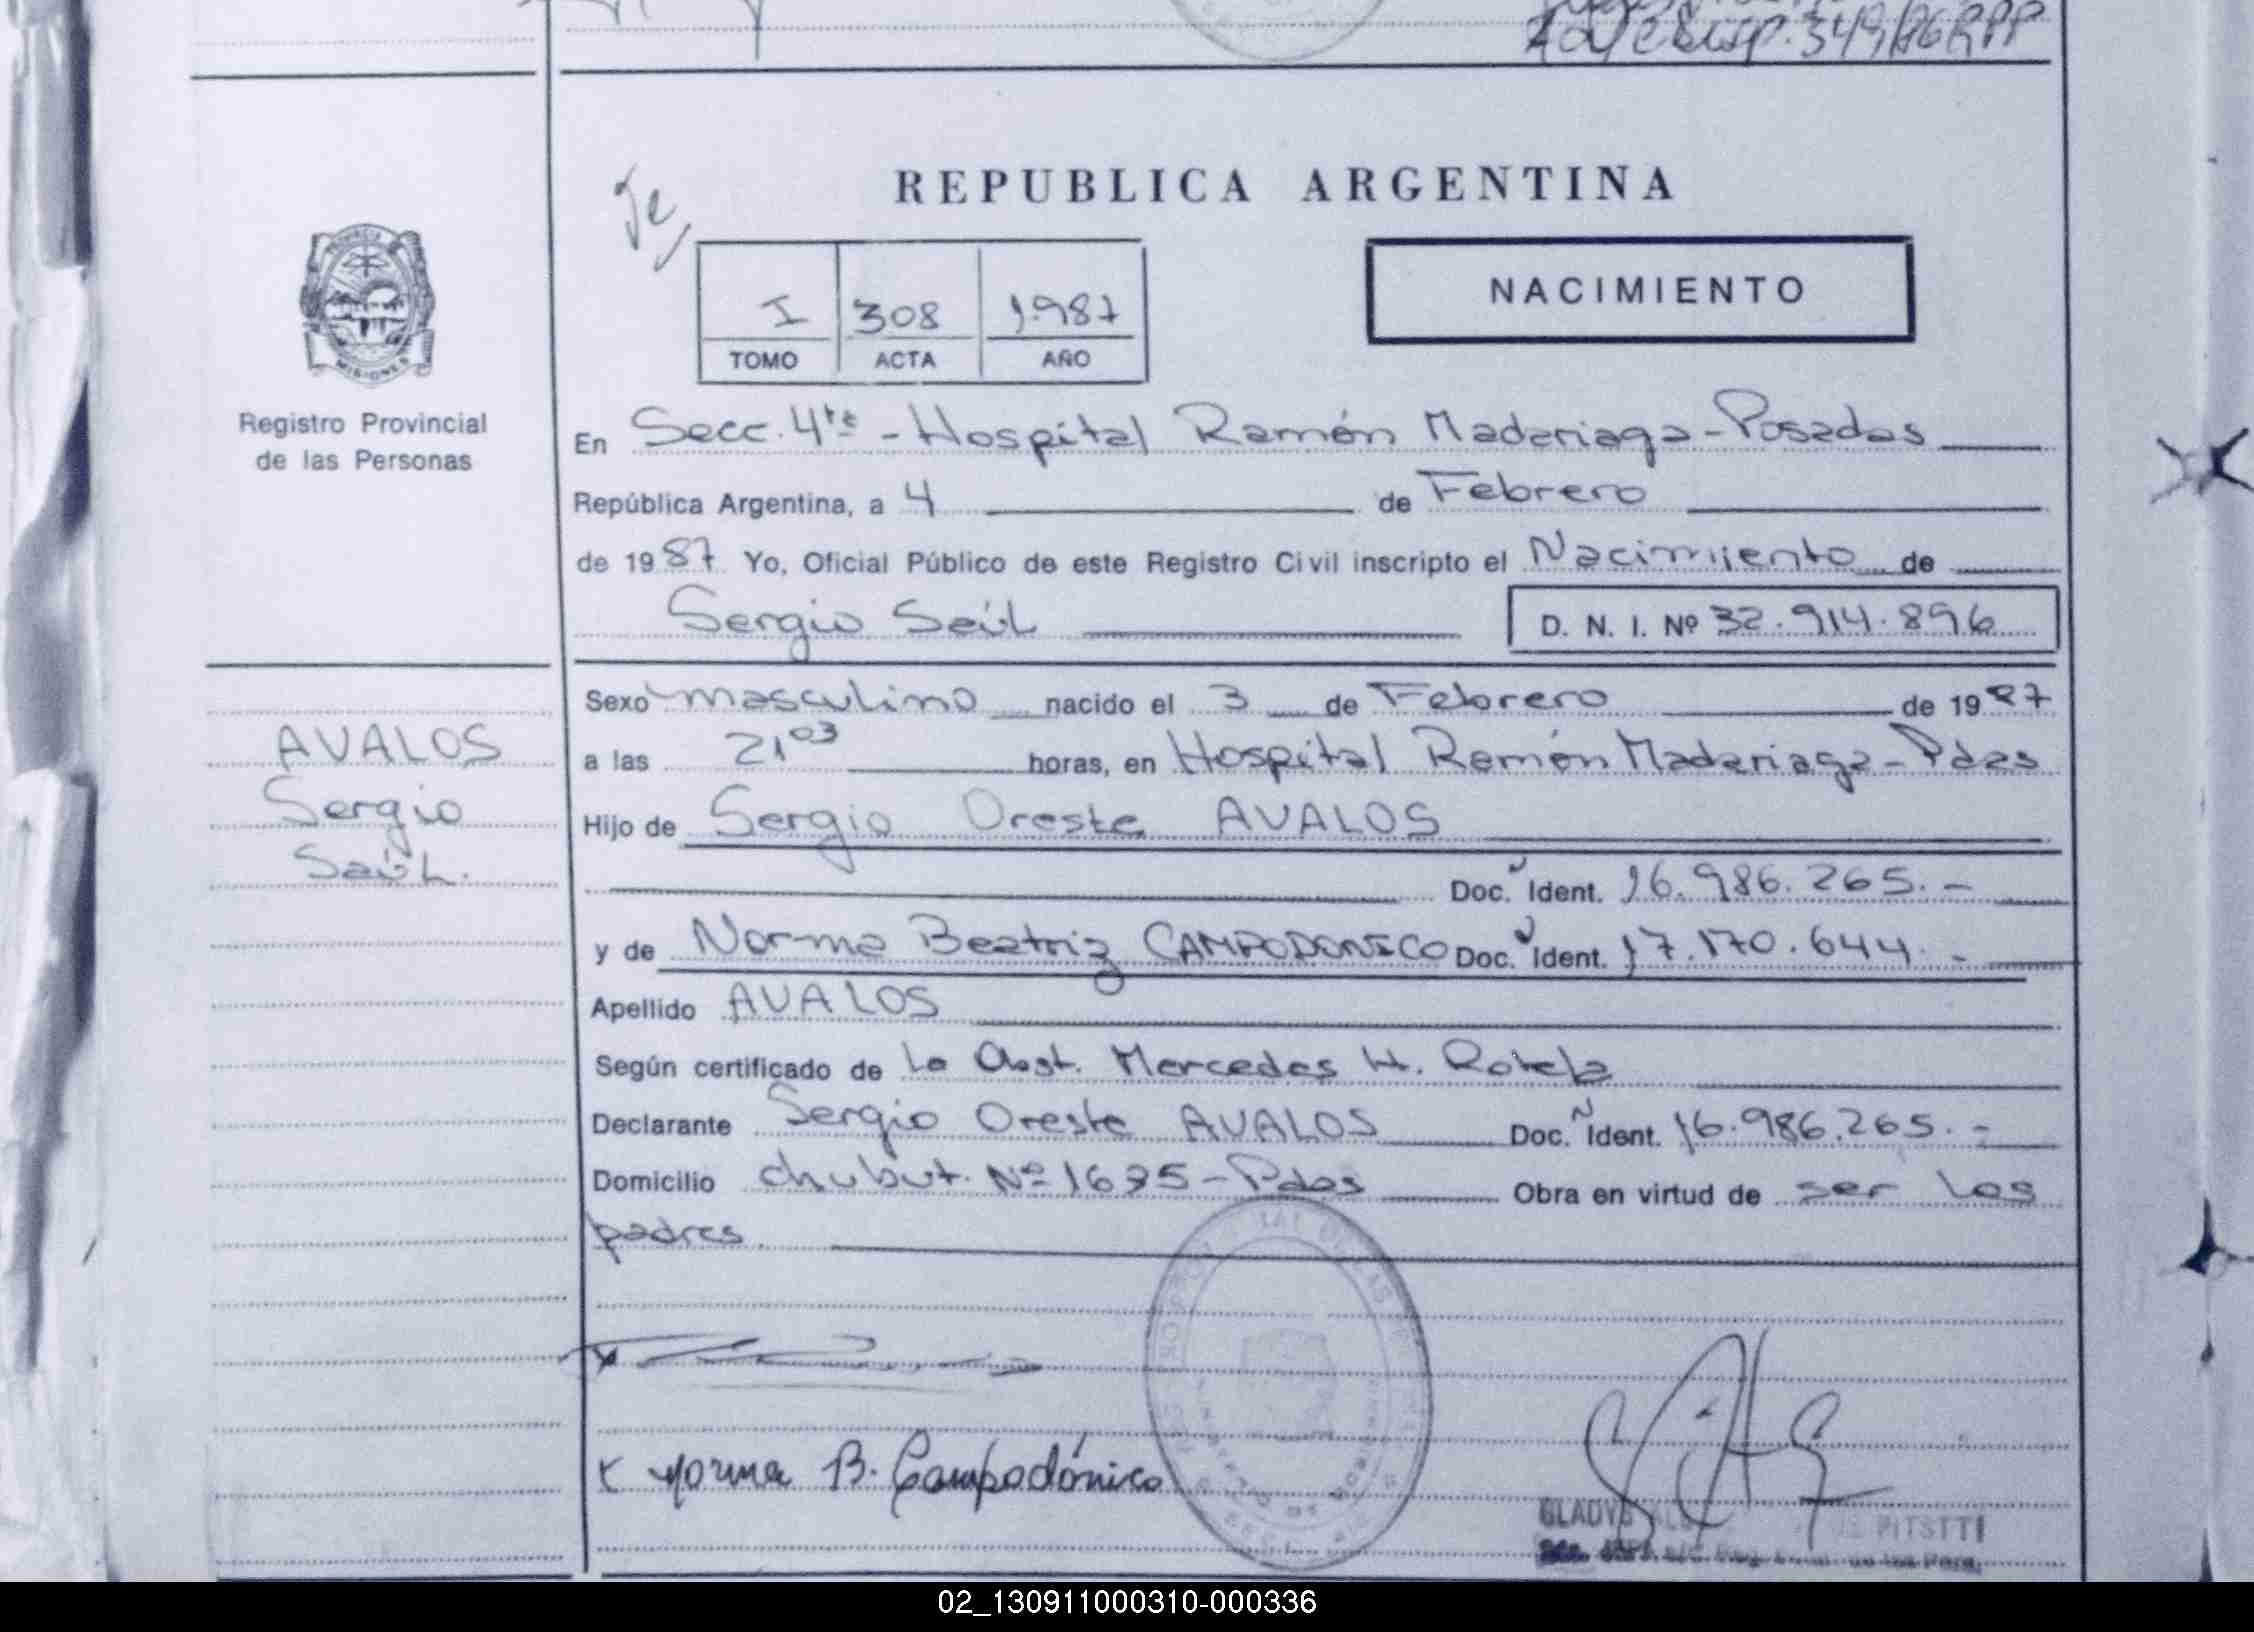 349/76 RPP
REPUBLICA ARGENTINA
I 308 1987
TOMO ACTA AÑO
NACIMIENTO
PROVINCIA
MISIONES
Registro Provincial
de las Personas
En Secc. 4ta - Hospital Ramón Madariaga - Posadas
República Argentina, a 4 de Febrero
de 1987 Yo, Oficial Público de este Registro Civil inscripto el Nacimiento de
Sergio Saúl D. N. I. Nº 32.914.896
Sexo masculino nacido el 3 de Febrero de 1987
AVALOS
Sergio
Saúl.
a las 21 03 horas, en Hospital Ramón Madariaga - Pdas
Hijo de Sergio Oreste AVALOS
Doc. Ident. 16.986.265.-
y de Norma Beatriz CAMPODONICO Doc. Ident. 17.170.644.-
Apellido AVALOS
Según certificado de la Obst. Mercedes H. Rotela
Declarante Sergio Oreste AVALOS Doc. Ident. 16.986.265.-
Domicilio Chubut. Nº 1695 - Pdas Obra en virtud de ser los
padres.
x Norma B. Campodónico
GLADYS PITSTTI
02_130911000310-000336